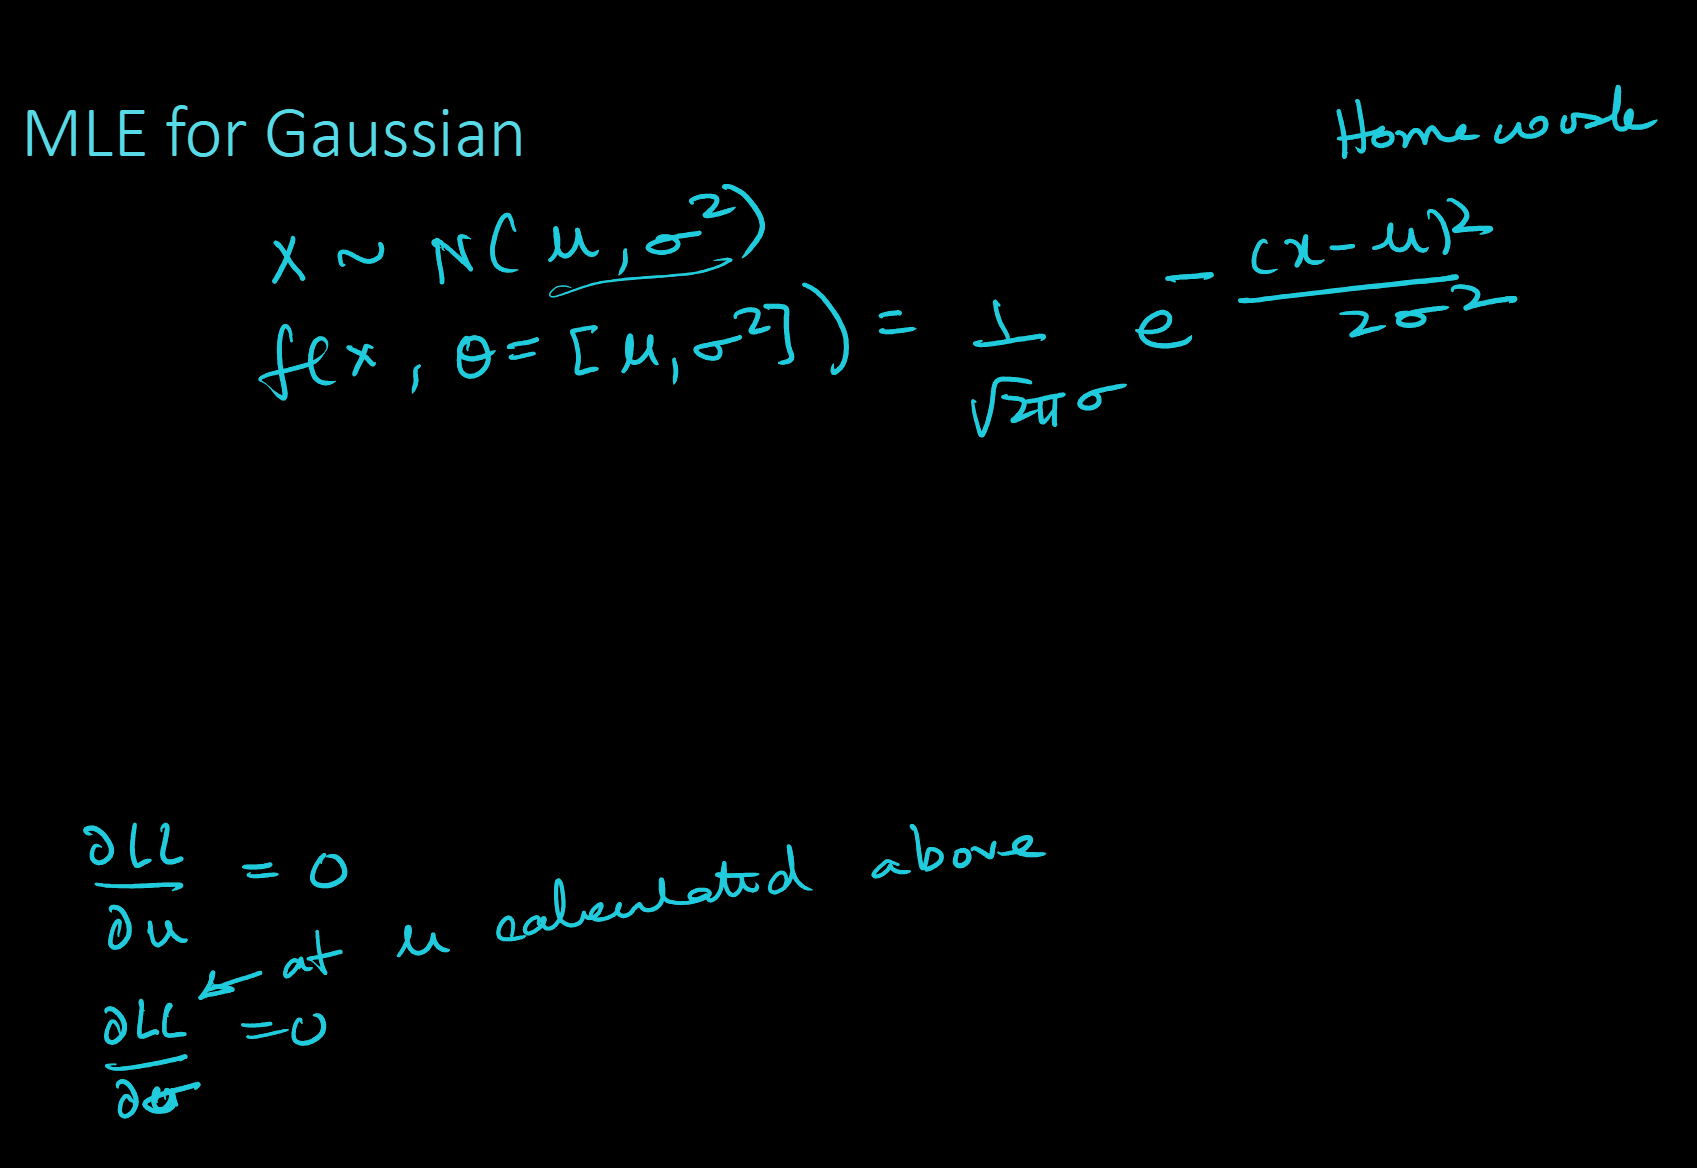 MLE for Gaussian
Homework
X ~ N(μ, σ²)
f(x, θ = [μ, σ²]) = 1/√2π σ e^-(x-μ)²/2σ²
∂LL/∂μ = 0
at μ calculated above
∂LL/∂σ = 0